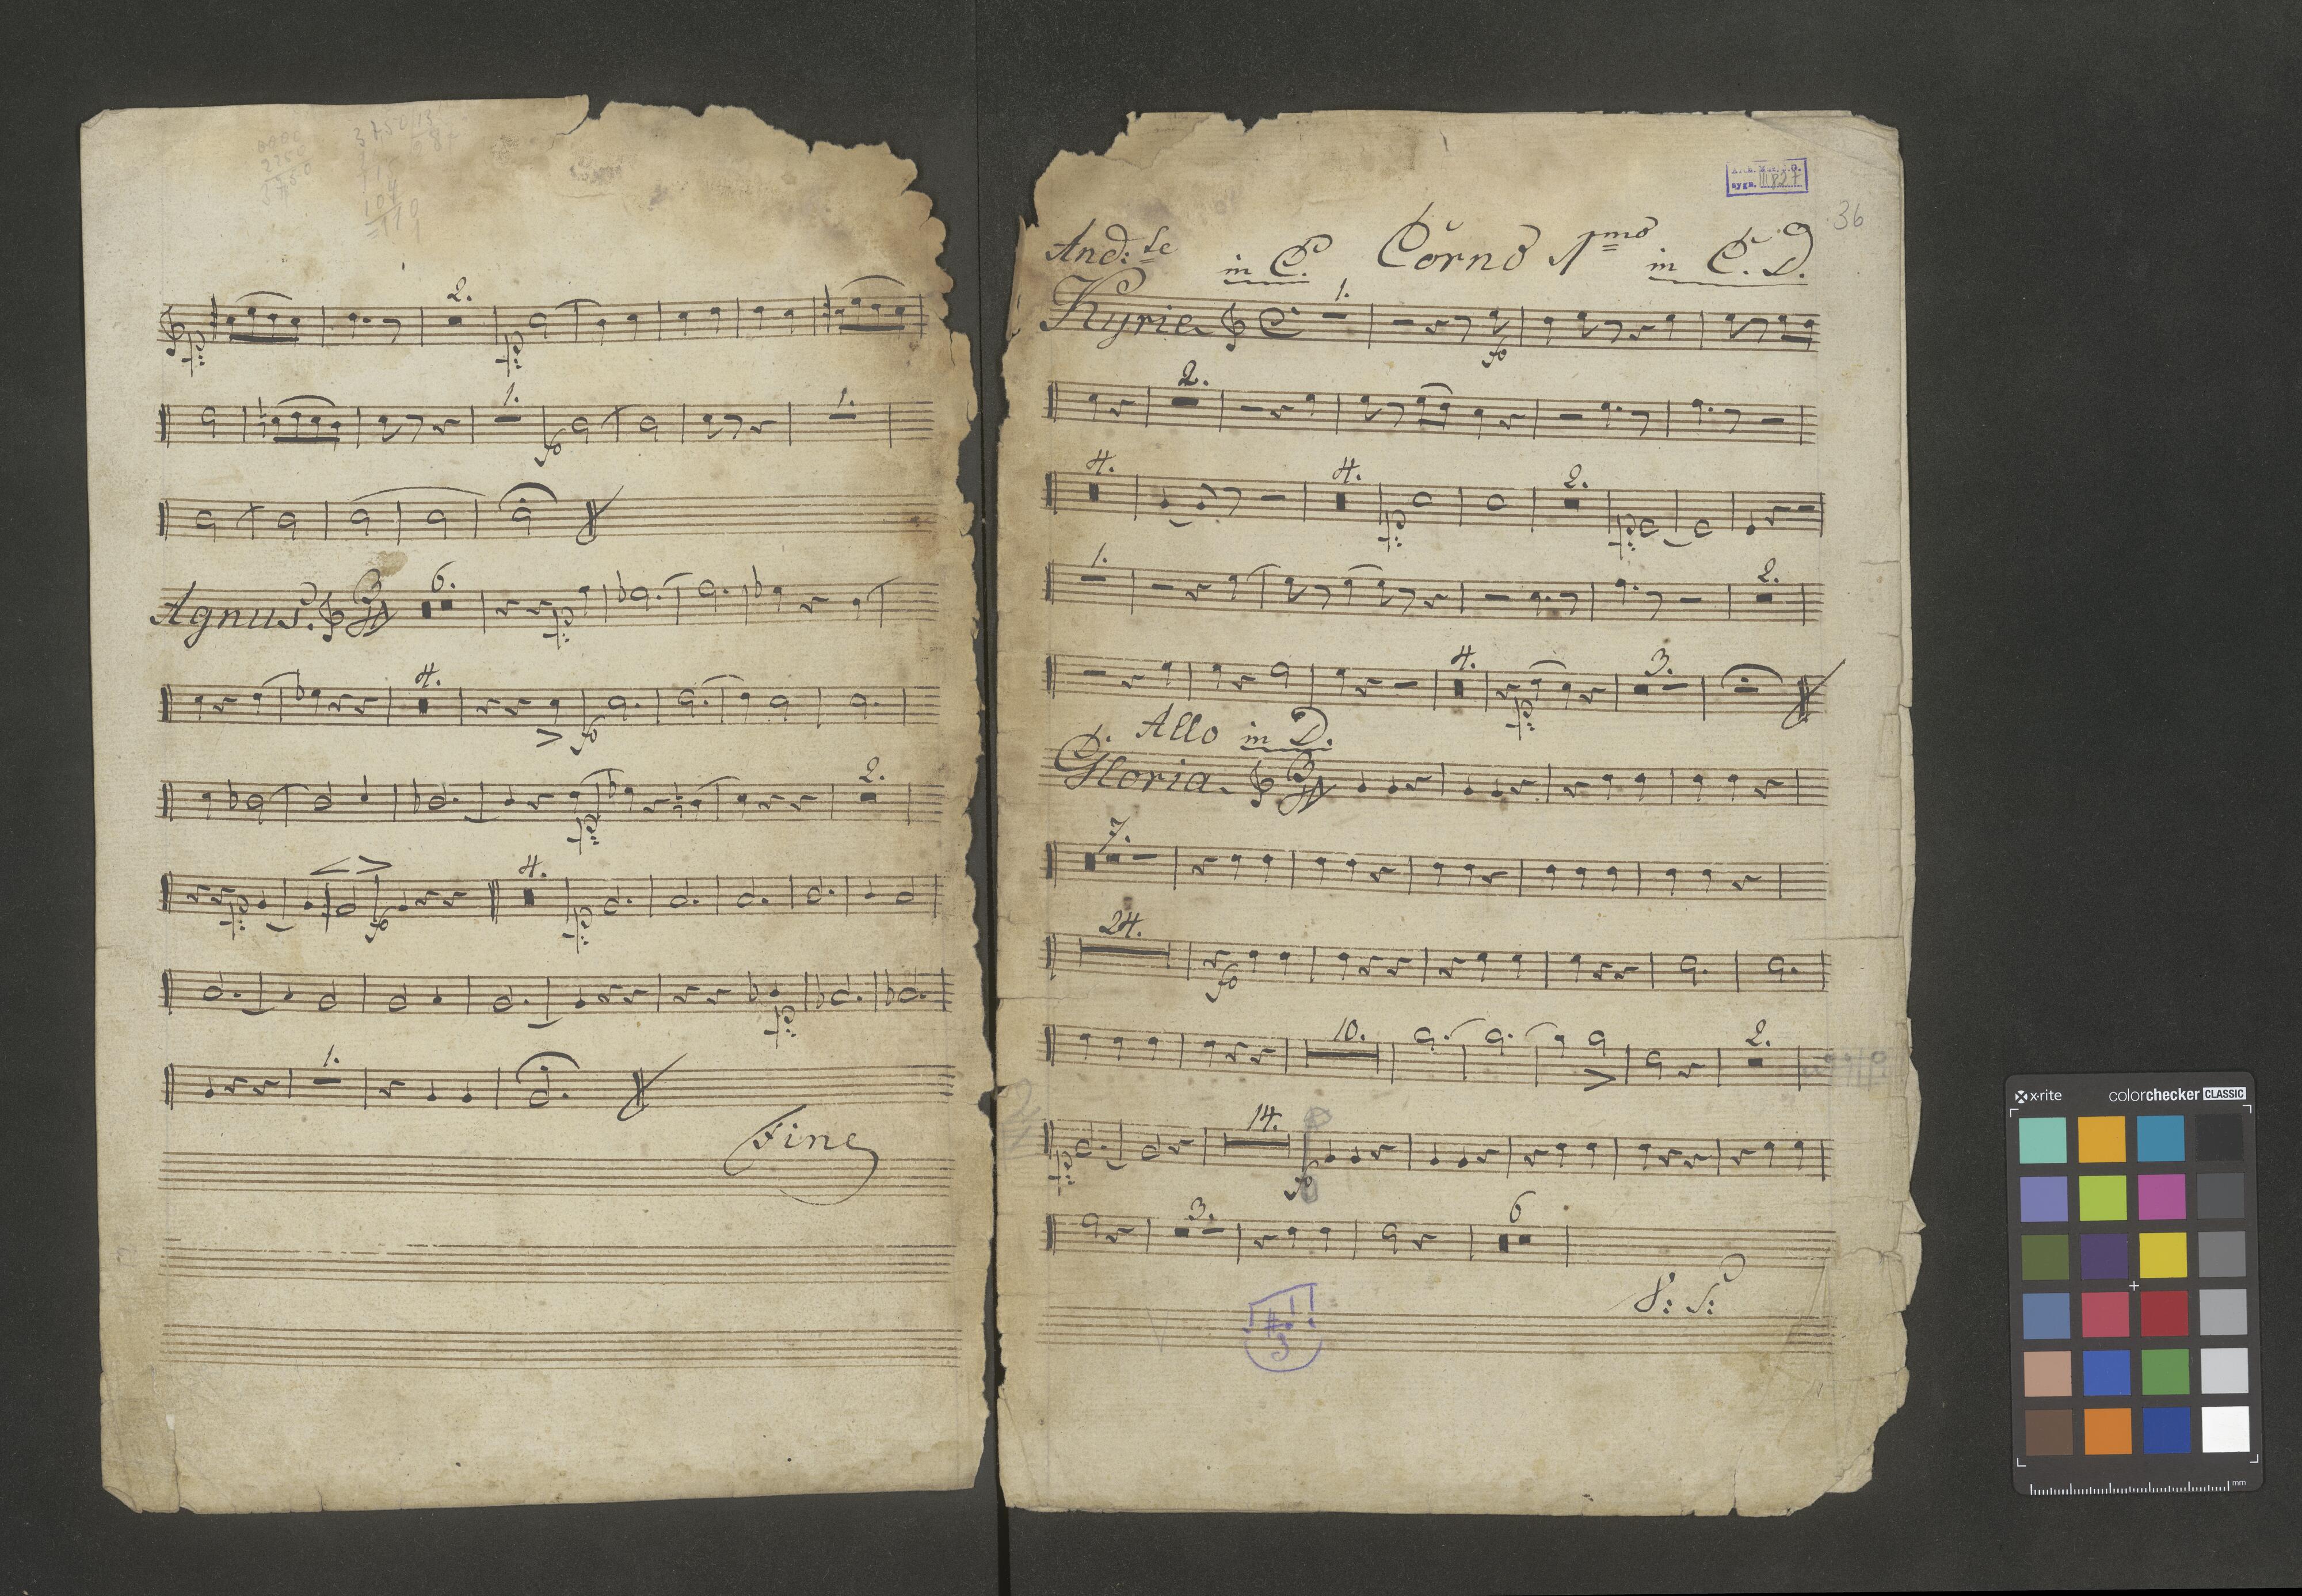 2.
p:
p:
1.
1.
fo
Agnus.
6.
p:
4.
fo
2.
p:
4.
p:
fo
p:
p:
1.
Fine
III 827
36
And:te
in C. Corno 1mo in C. D.
Kyrie
1.
fo
2.
4.
4.
2.
p:
p:
1.
2.
4.
3.
p:
Allo in D.
Gloria.
7.
24.
fo
10.
2.
14.
p:
fo
3.
6
V: S:
x-rite colorchecker CLASSIC
mm